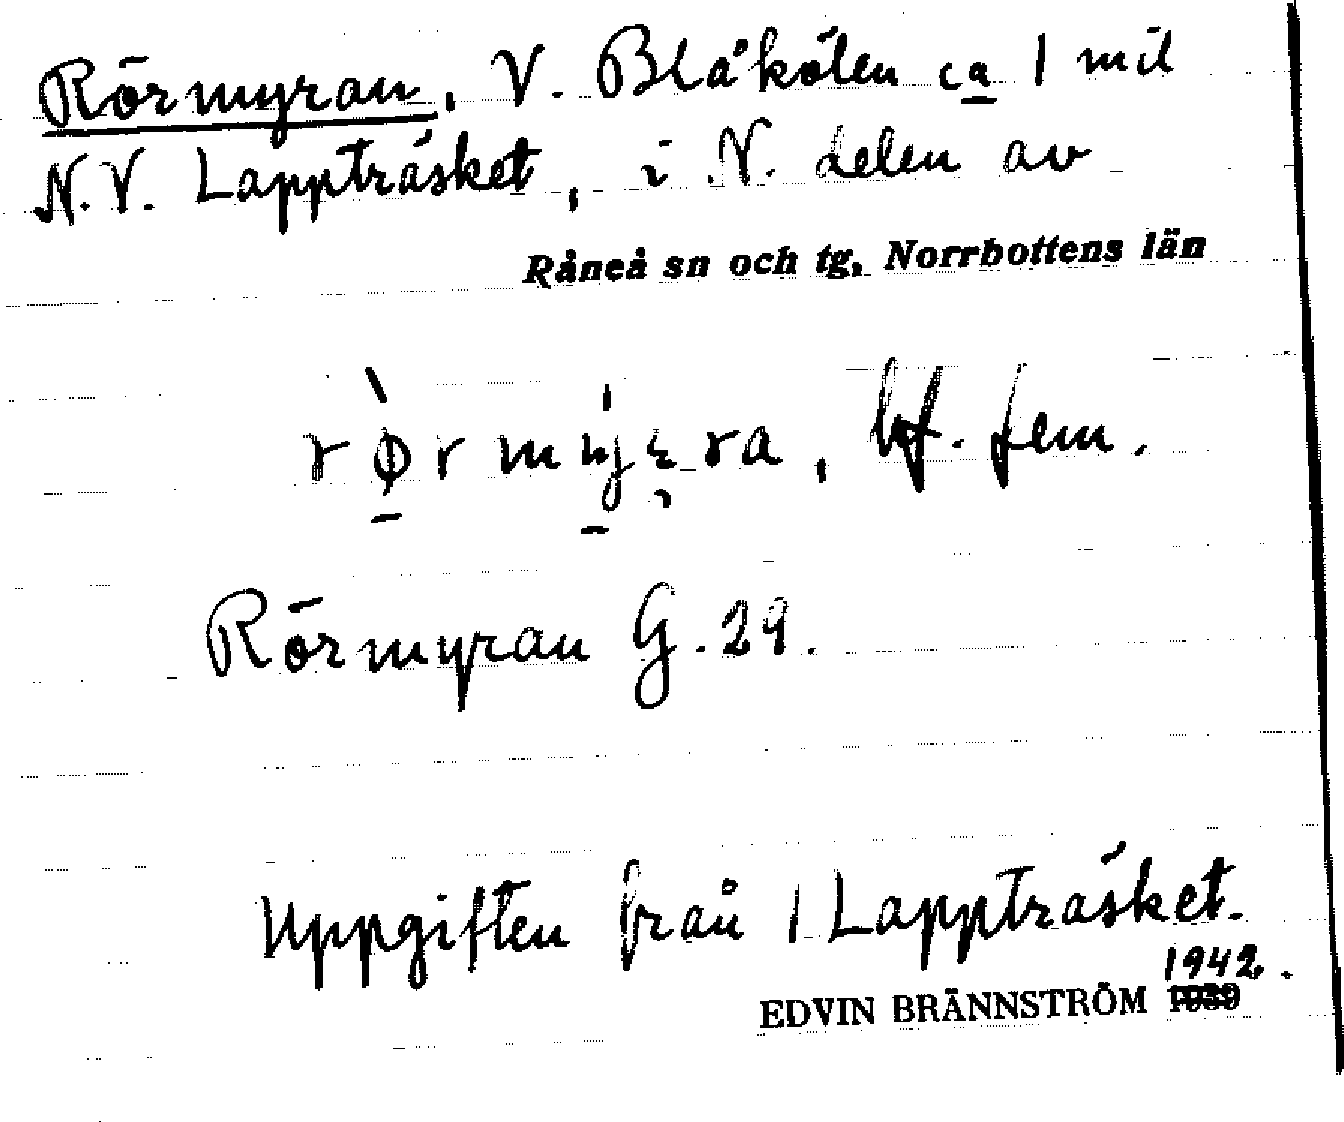 Rörmyran, V. Blåkölen ca 1 mil
N.V. Lappträsket, i N. delen av
Råneå sn och tg, Norrbottens län
bf. fem.
Rörmyran G. 29.
Uppgiften från 1 Lappträsket.
1942.
EDVIN BRÄNNSTRÖM 1939